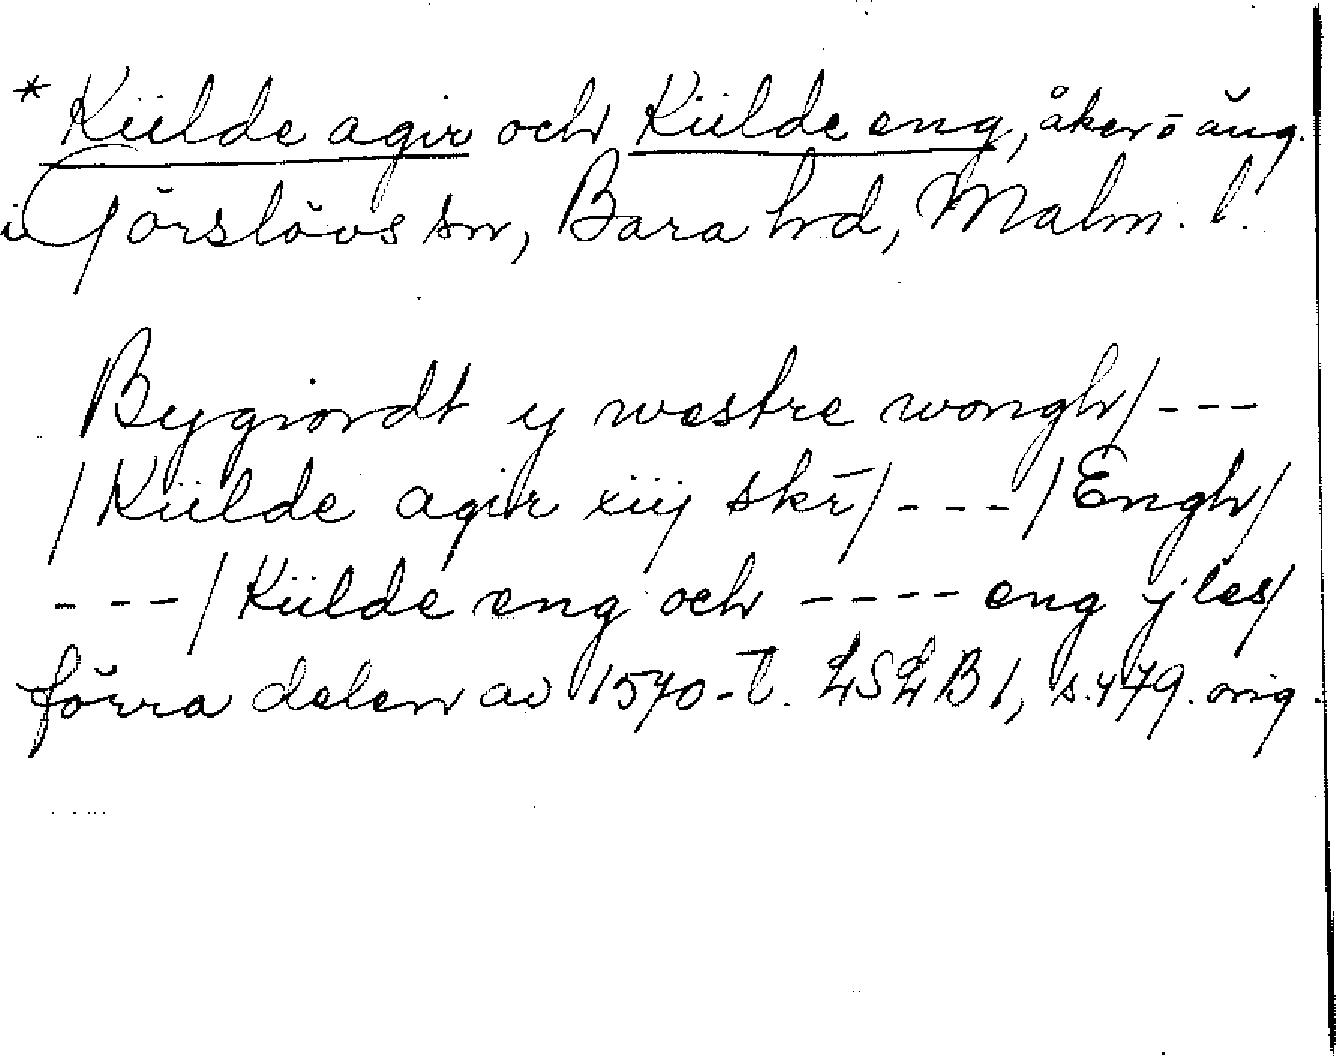 * Kiilde agir och Kiilde eng, åker o äng.
i Görslövs sn, Bara hd, Malm. l.
Bygiordt y westre wongh/ ---
/Kiilde agir xiij skr/ --- /Engh/
--- /Kiilde eng och ---- eng j les/
förra delen av 1570-t. LSLB 1, s. 479. orig.